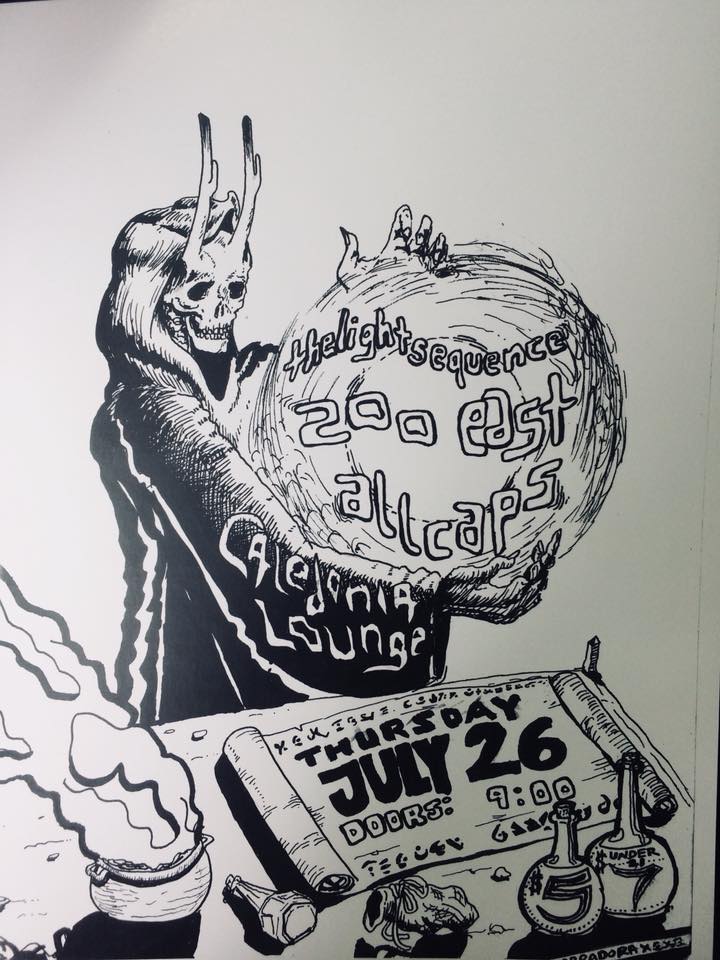 thelightsequence
zoo east
allcaps
Caledonia
Lounge
THURSDAY
JULY 26
DOORS: 9:00
$5
$ UNDER 21 7